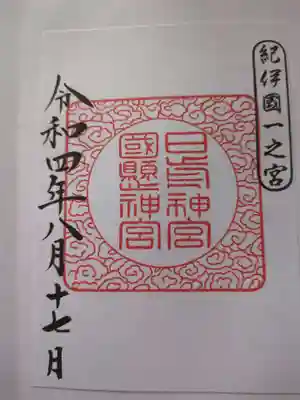 紀伊國一之宮
日前神宮
國懸神宮
令和四年八月十七月